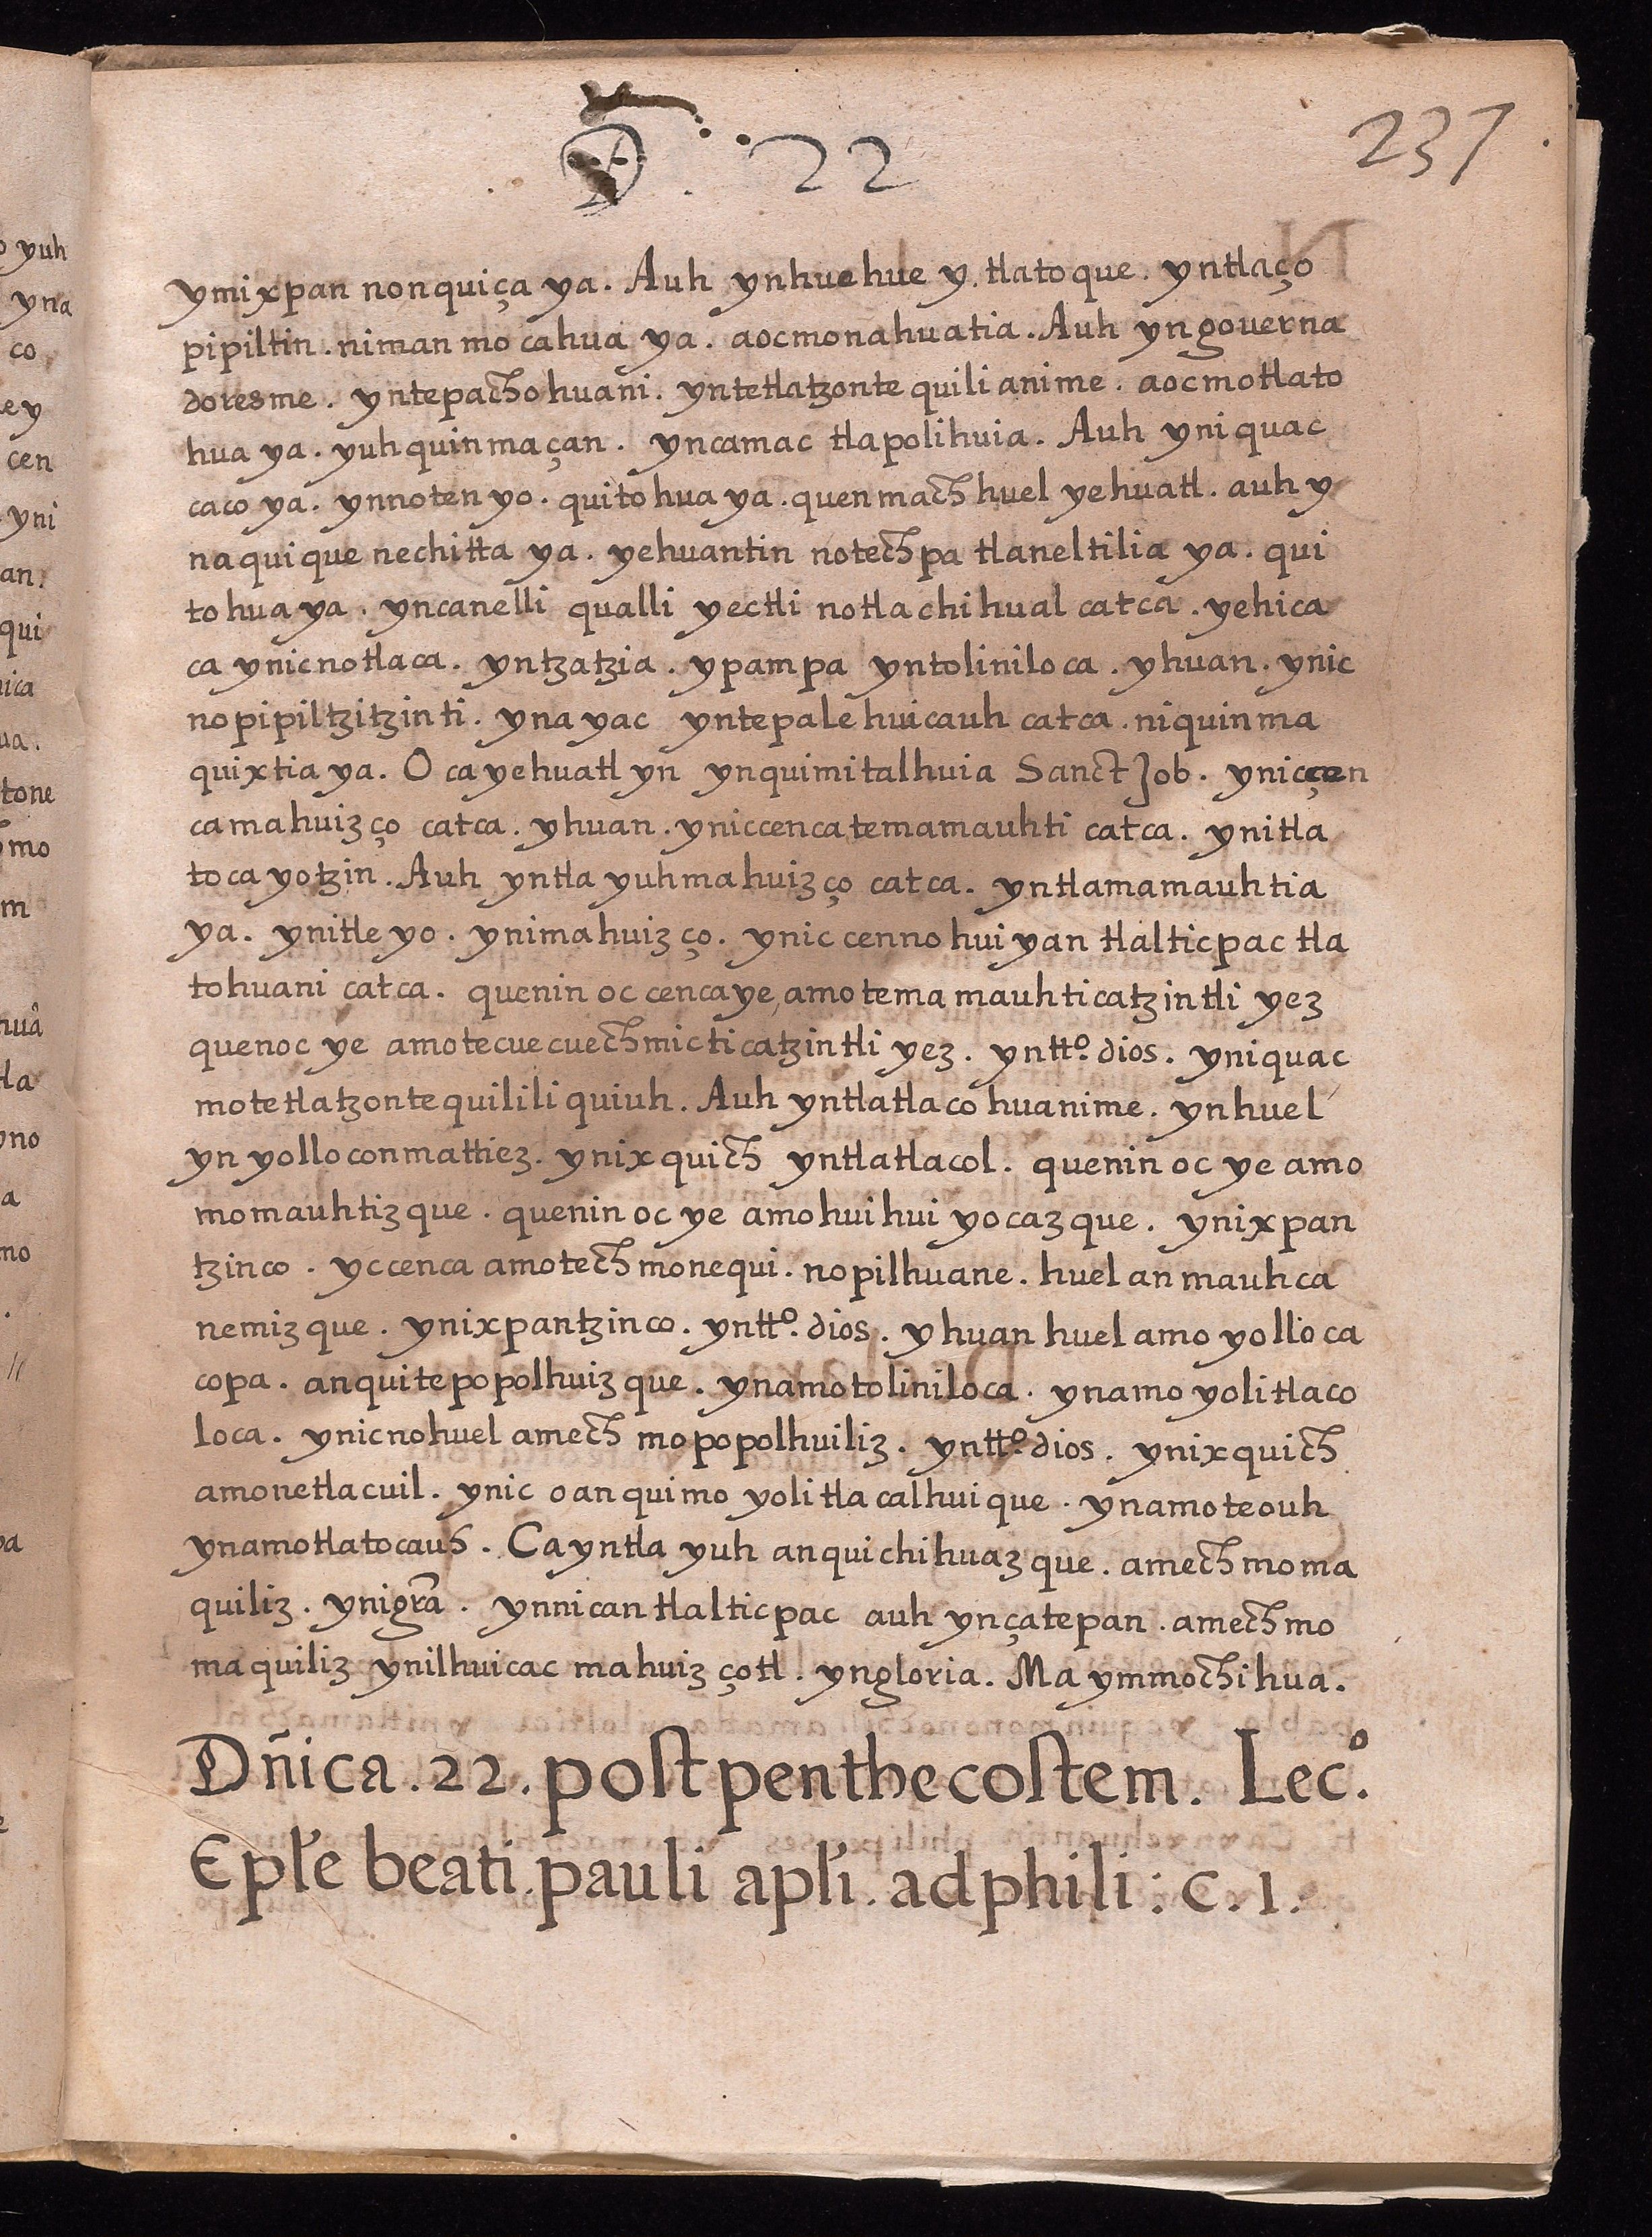 D. 22
237
ymixpan nonquiça ya. Auh ynhuehue y. tlatoque. yntlaço
pipiltin. niman mo cahua ya. aocmonahuatia. Auh yngoverna
doresme. yntepachohuani. yntetlatzonte quili anime. aocmotlato
hua ya. yuhquinmaçan. yncamac tlapolihuia. Auh yniquac
caco ya. ynnoten yo. quitohua ya. quenmach huel yehuatl. auh y
naquique nechitta ya. yehuantin notechpa tlaneltilia ya. qui
tohua ya. yncanelli qualli yectli notlachihual catca. yehica
ca ynicnotlaca. yntzatzia. ypampa yntoliniloca. yhuan. ynic
nopipiltzitzinti. ynayac yntepalehuicauh catca. niquinma
quixtia ya. O ca yehuatl yn ynquimitalhuia Sanct Job. yniccen
camahuizço catca. yhuan. yniccencatemamauhti catca. ynitla
tocayotzin. Auh yntla yuhmahuizço catca. yntlamamauhtia
ya. ynitleyo. ynimahuizço. ynic cennohuiyan tlalticpac tla
tohuani catca. quenin oc cencaye, amotemamauhticatzintli yez
quenoc ye amotecuecuechmicticatzintli yez. yntto. dios. yniquac
motetlatzontequilili quiuh. Auh yntlatlacohuanime. ynhuel
yn yolloconmattiez. ynixquich yntlatlacol. quenin oc ye amo
momauhtizque. quenin oc ye amohuihuiyocazque. ynixpan
tzinco. yccenca amotech monequi. nopilhuane. huel anmauhca
nemizque. ynixpantzinco. yntto. dios. yhuan huel amo yolloca
copa. anquitepopolhuizque. ynamotoliniloca. ynamo yolitlaco
loca. ynicnohuel amech mopopolhuiliz. yntto. dios. ynixquich
amonetlacuil. ynic oanquimo yolitlacalhuique. ynamoteouh
ynamotlatocauh. Cayntla yuh anquichihuazque. amechmoma
quiliz. ynigrã. ynnican tlalticpac auh ynçatepan. amechmo
maquiliz ynilhuicac mahuizçotl. yngloria. Ma ymmochihua.
Dñica. 22. post penthecostem. Leco.
Epl'e beati. pauli apl'i. ad phili: c. 1.